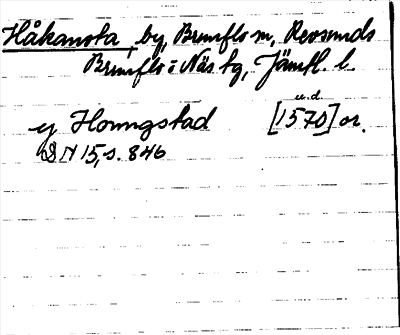 Håkansta, by, Brunflo sn, Revsunds
Brunflo o Näs tg, Jämtl. l.
u.d
y Honngstad [1570] or.
DN 15, s. 846